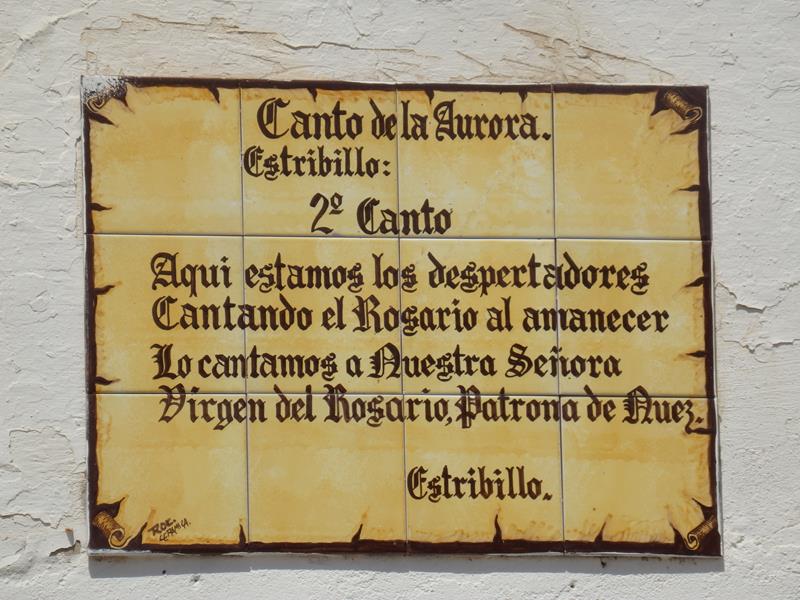 Canto de la Aurora.
Estribillo:
2º Canto
Aqui estamos los despertadores
Cantando el Rosario al amanecer
Lo cantamos a Nuestra Señora
Virgen del Rosario, Patrona de Nuez.
Estribillo.
CERAMICA.